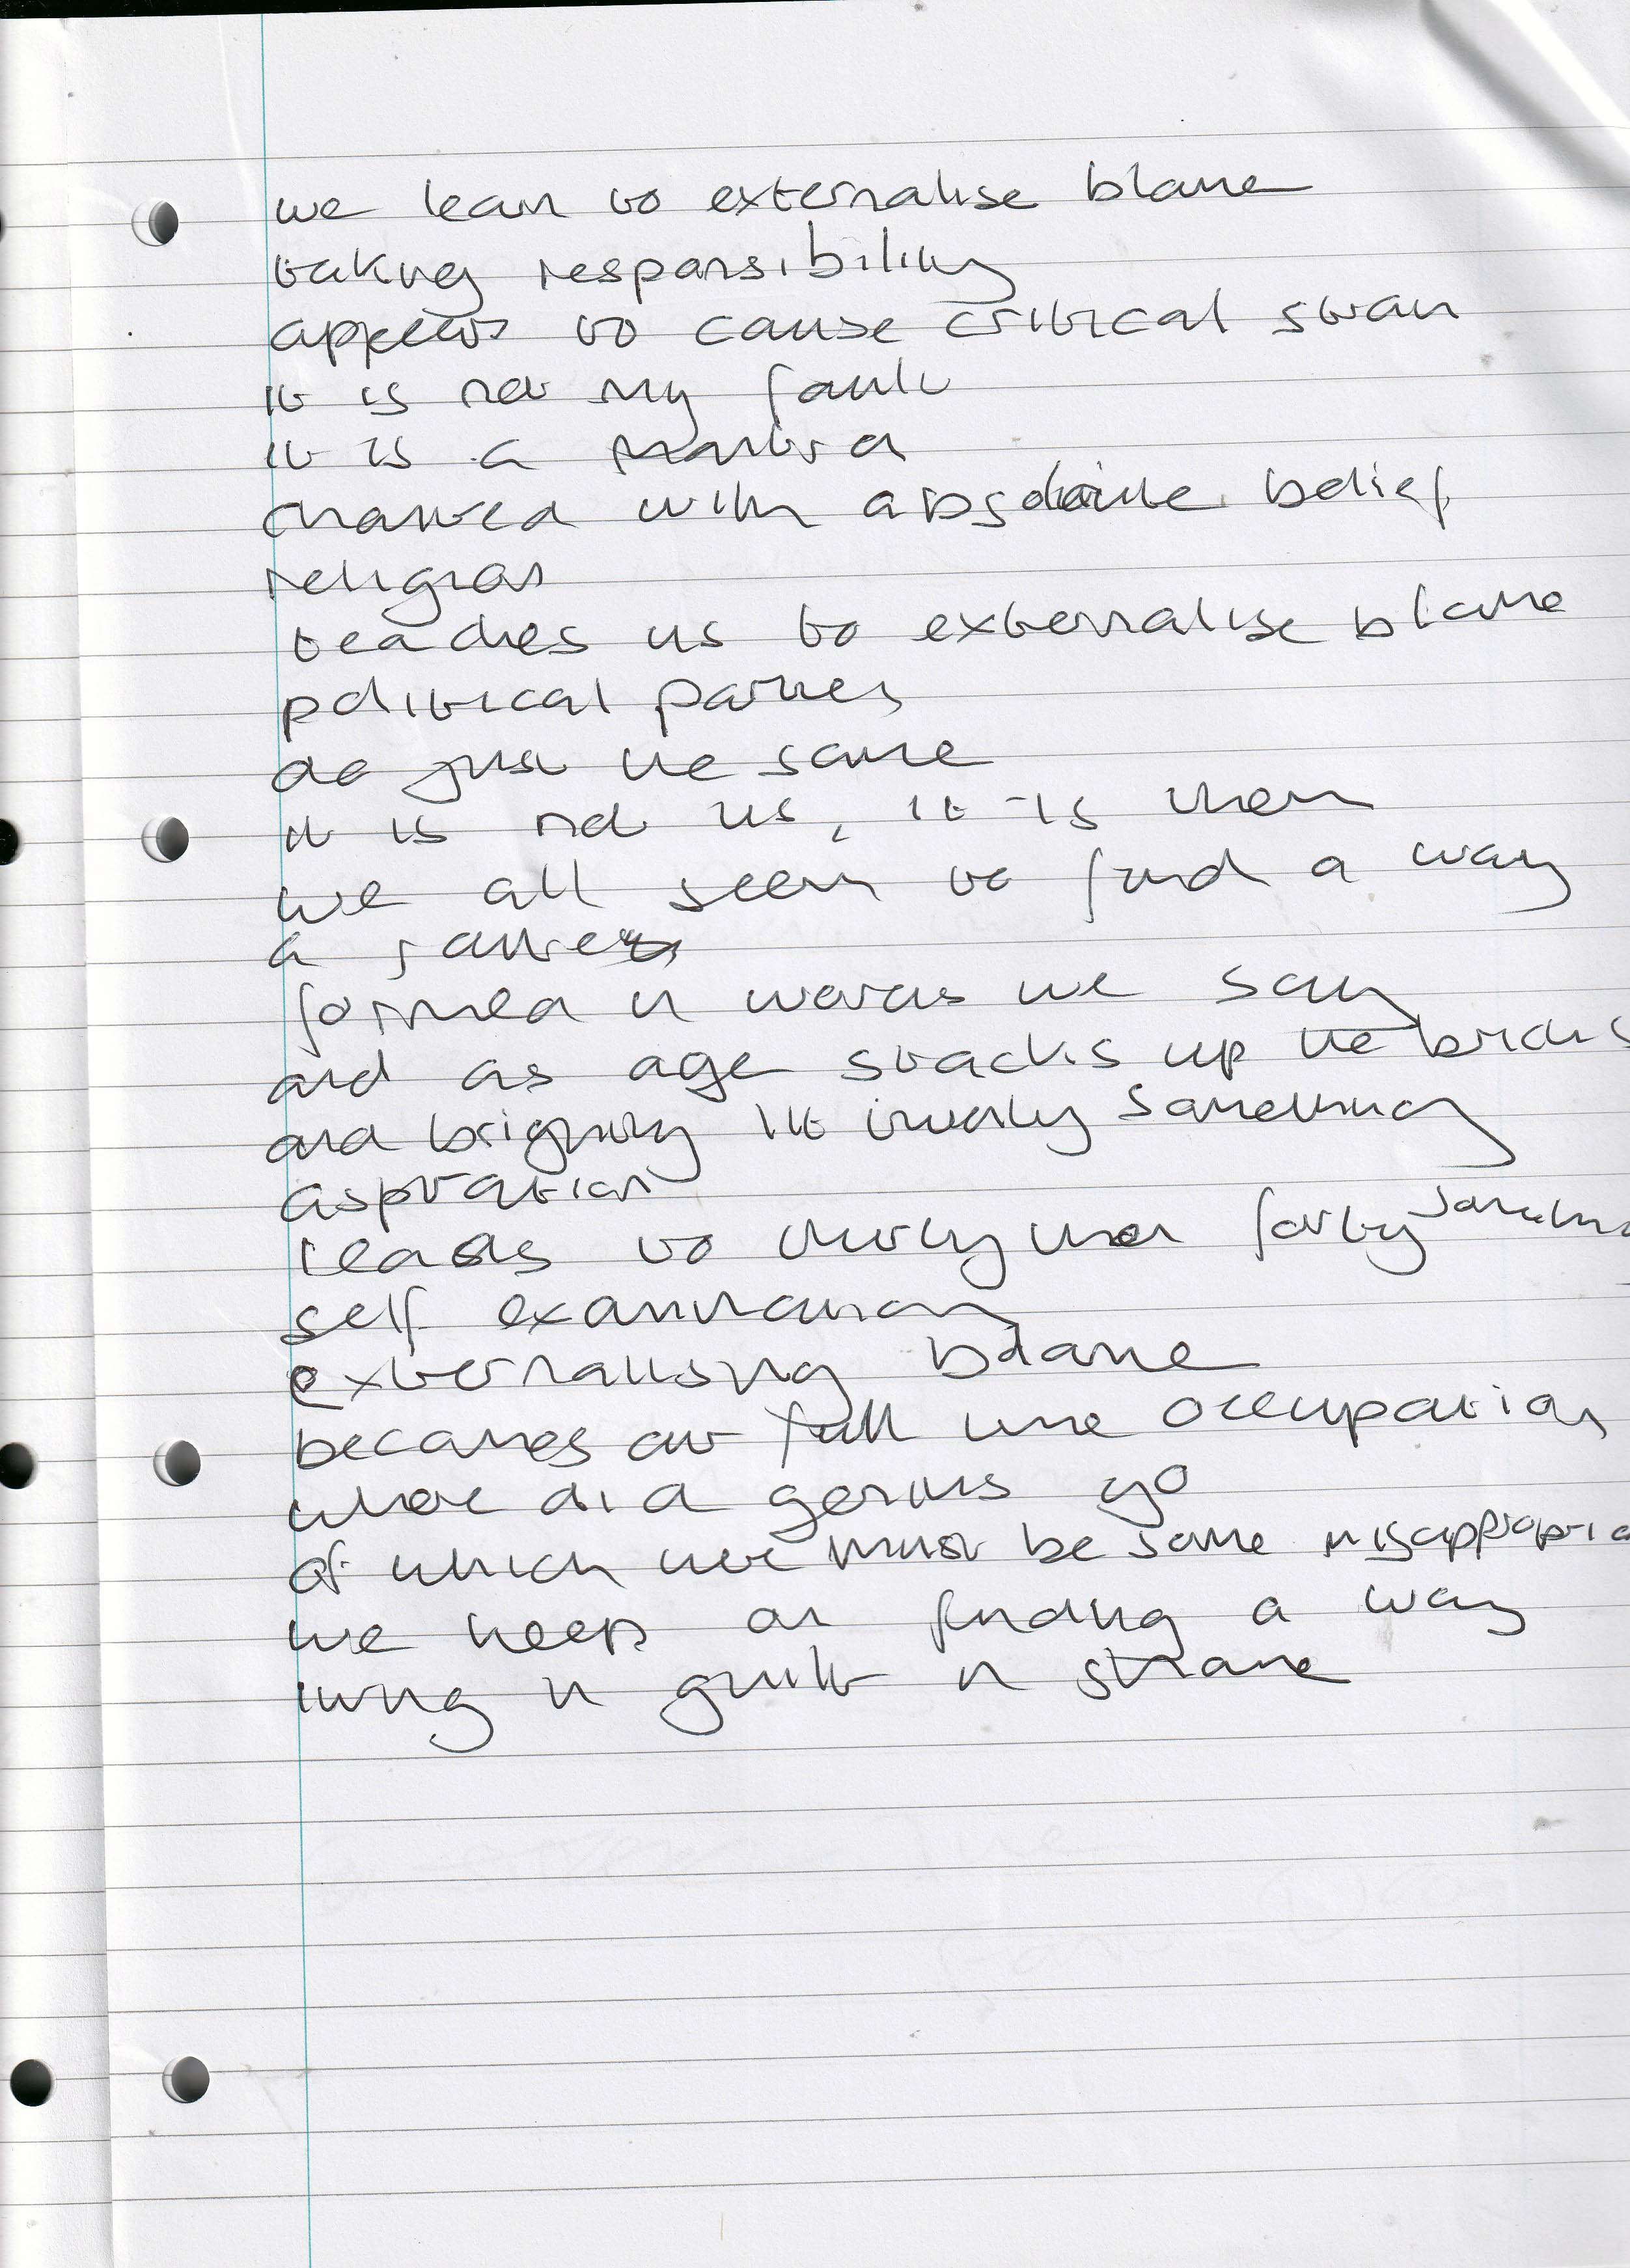 we learn to externalise blame
taking responsibility
appears to cause critical strain
it is not my fault
it is a mantra
chanted with absolute belief
religion
teaches us to externalise blame
political parties
do just the same
it is not us, it is them
we all seem to find a way
a
formed in words we say
and as age stacks up the bricks
and bright twenty something
aspiration
leads to thirty then forty
self examination
externalising blame
becomes our full time occupation
where did genius go
of which there must be some
we keep on finding a way
living in guilt in shame